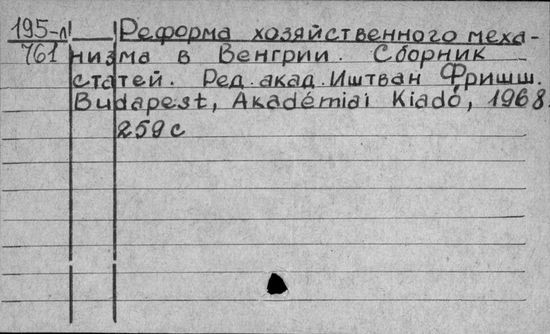 195-л! Реформа хозяйственного меха-
761 низма в Венгрии. Сборник
статей. Ред. акад. Иштван Фришш.
Budapest, Akadémiai Kiadó, 1968.
259 с